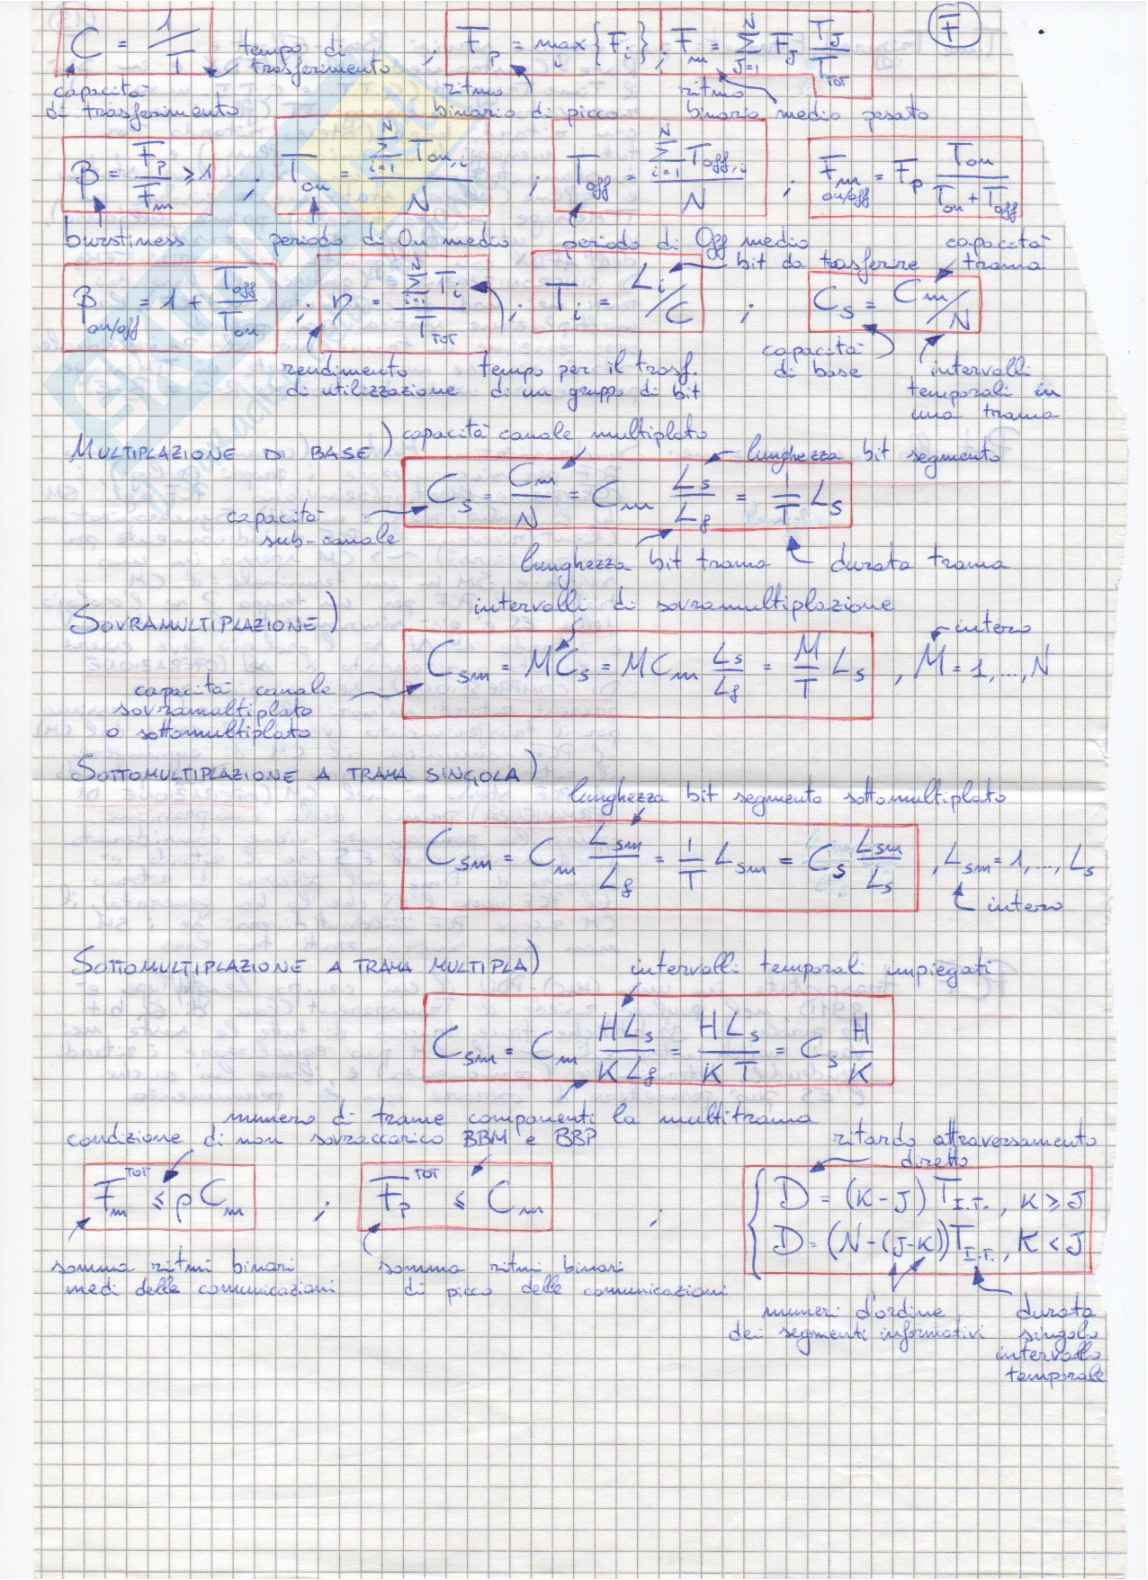 F
C = 1/T ; F_p = max_i {F_i} ; F_m = Σ_{J=1}^{N} F_J T_J/T_TOT
tempo di trasferimento
capacità di trasferimento
ritmo binario di picco
ritmo binario medio pesato
B = F_p/F_m ≥ 1 ; T_on = Σ_{i=1}^{N} T_on,i / N ; T_off = Σ_{i=1}^{N} T_off,i / N ; F_m on/off = F_p T_on/(T_on + T_off)
burstiness
periodo di On medio
periodo di Off medio
B on/off = 1 + T_off/T_on ; η = Σ_{i=1}^{N} T_i / T_TOT ; T_i = L_i/C ; C_s = C_m/N
bit da trasferire
capacità trama
rendimento di utilizzazione
tempo per il trasf. di un gruppo di bit
capacità di base
intervalli temporali in una trama
MULTIPLAZIONE DI BASE)
capacità canale multiplato
lunghezza bit segmento
C_s = C_m/N = C_m L_s/L_f = 1/T L_s
capacità sub-canale
lunghezza bit trama
durata trama
SOVRAMULTIPLAZIONE)
intervalli di sovramultiplazione
C_sm = M C_s = M C_m L_s/L_f = M/T L_s , M = 1,...,N
intero
capacità canale
sovramultiplato
o sottomultiplato
SOTTOMULTIPLAZIONE A TRAMA SINGOLA)
lunghezza bit segmento sottomultiplato
C_sm = C_m L_sm/L_f = 1/T L_sm = C_s L_sm/L_s , L_sm = 1,...,L_s
intero
SOTTOMULTIPLAZIONE A TRAMA MULTIPLA)
intervalli temporali impiegati
C_sm = C_m H L_s/(K L_f) = H L_s/(K T) = C_s H/K
numero di trame componenti la multitrama
condizione di non sovraccarico BBM e BBP
ritardo attraversamento diretto
F_m^TOT ≤ ρ C_m ; F_p^TOT ≤ C_m ;
D = (K-J) T_I.T. , K ≥ J
D = (N-(J-K)) T_I.T. , K < J
somma ritmi binari
medi delle comunicazioni
somma ritmi binari
di picco delle comunicazioni
numeri d'ordine
dei segmenti informativi
durata
singolo
intervallo
temporale